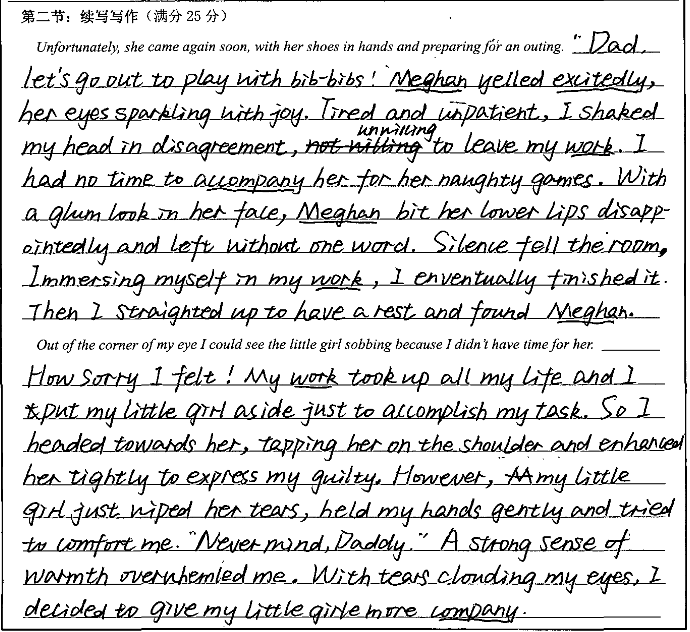 第二节：续写写作（满分 25 分）
Unfortunately, she came again soon, with her shoes in hands and preparing for an outing. "Dad,
let's go out to play with bib-bibs! Meghan yelled excitedly,
her eyes sparkling with joy. Tired and unpatient, I shaked
my head in disagreement, not willing unwilling to leave my work. I
had no time to accompany her for her naughty games. With
a glum look in her face, Meghan bit her lower lips disapp-
ointedly and left without one word. Silence fell the room,
Immersing myself in my work, I enventually finished it.
Then I straighted up to have a rest and found Meghan.
Out of the corner of my eye I could see the little girl sobbing because I didn't have time for her.
How sorry I felt! My work took up all my life and I
put my little girl aside just to accomplish my task. So I
headed towards her, tapping her on the shoulder and enhanced
her tightly to express my guilty. However, my little
girl just wiped her tears, held my hands gently and tried
to comfort me. "Never mind, Daddy." A strong sense of
warmth overwhemled me. With tears clouding my eyes, I
decided to give my little girle more company.